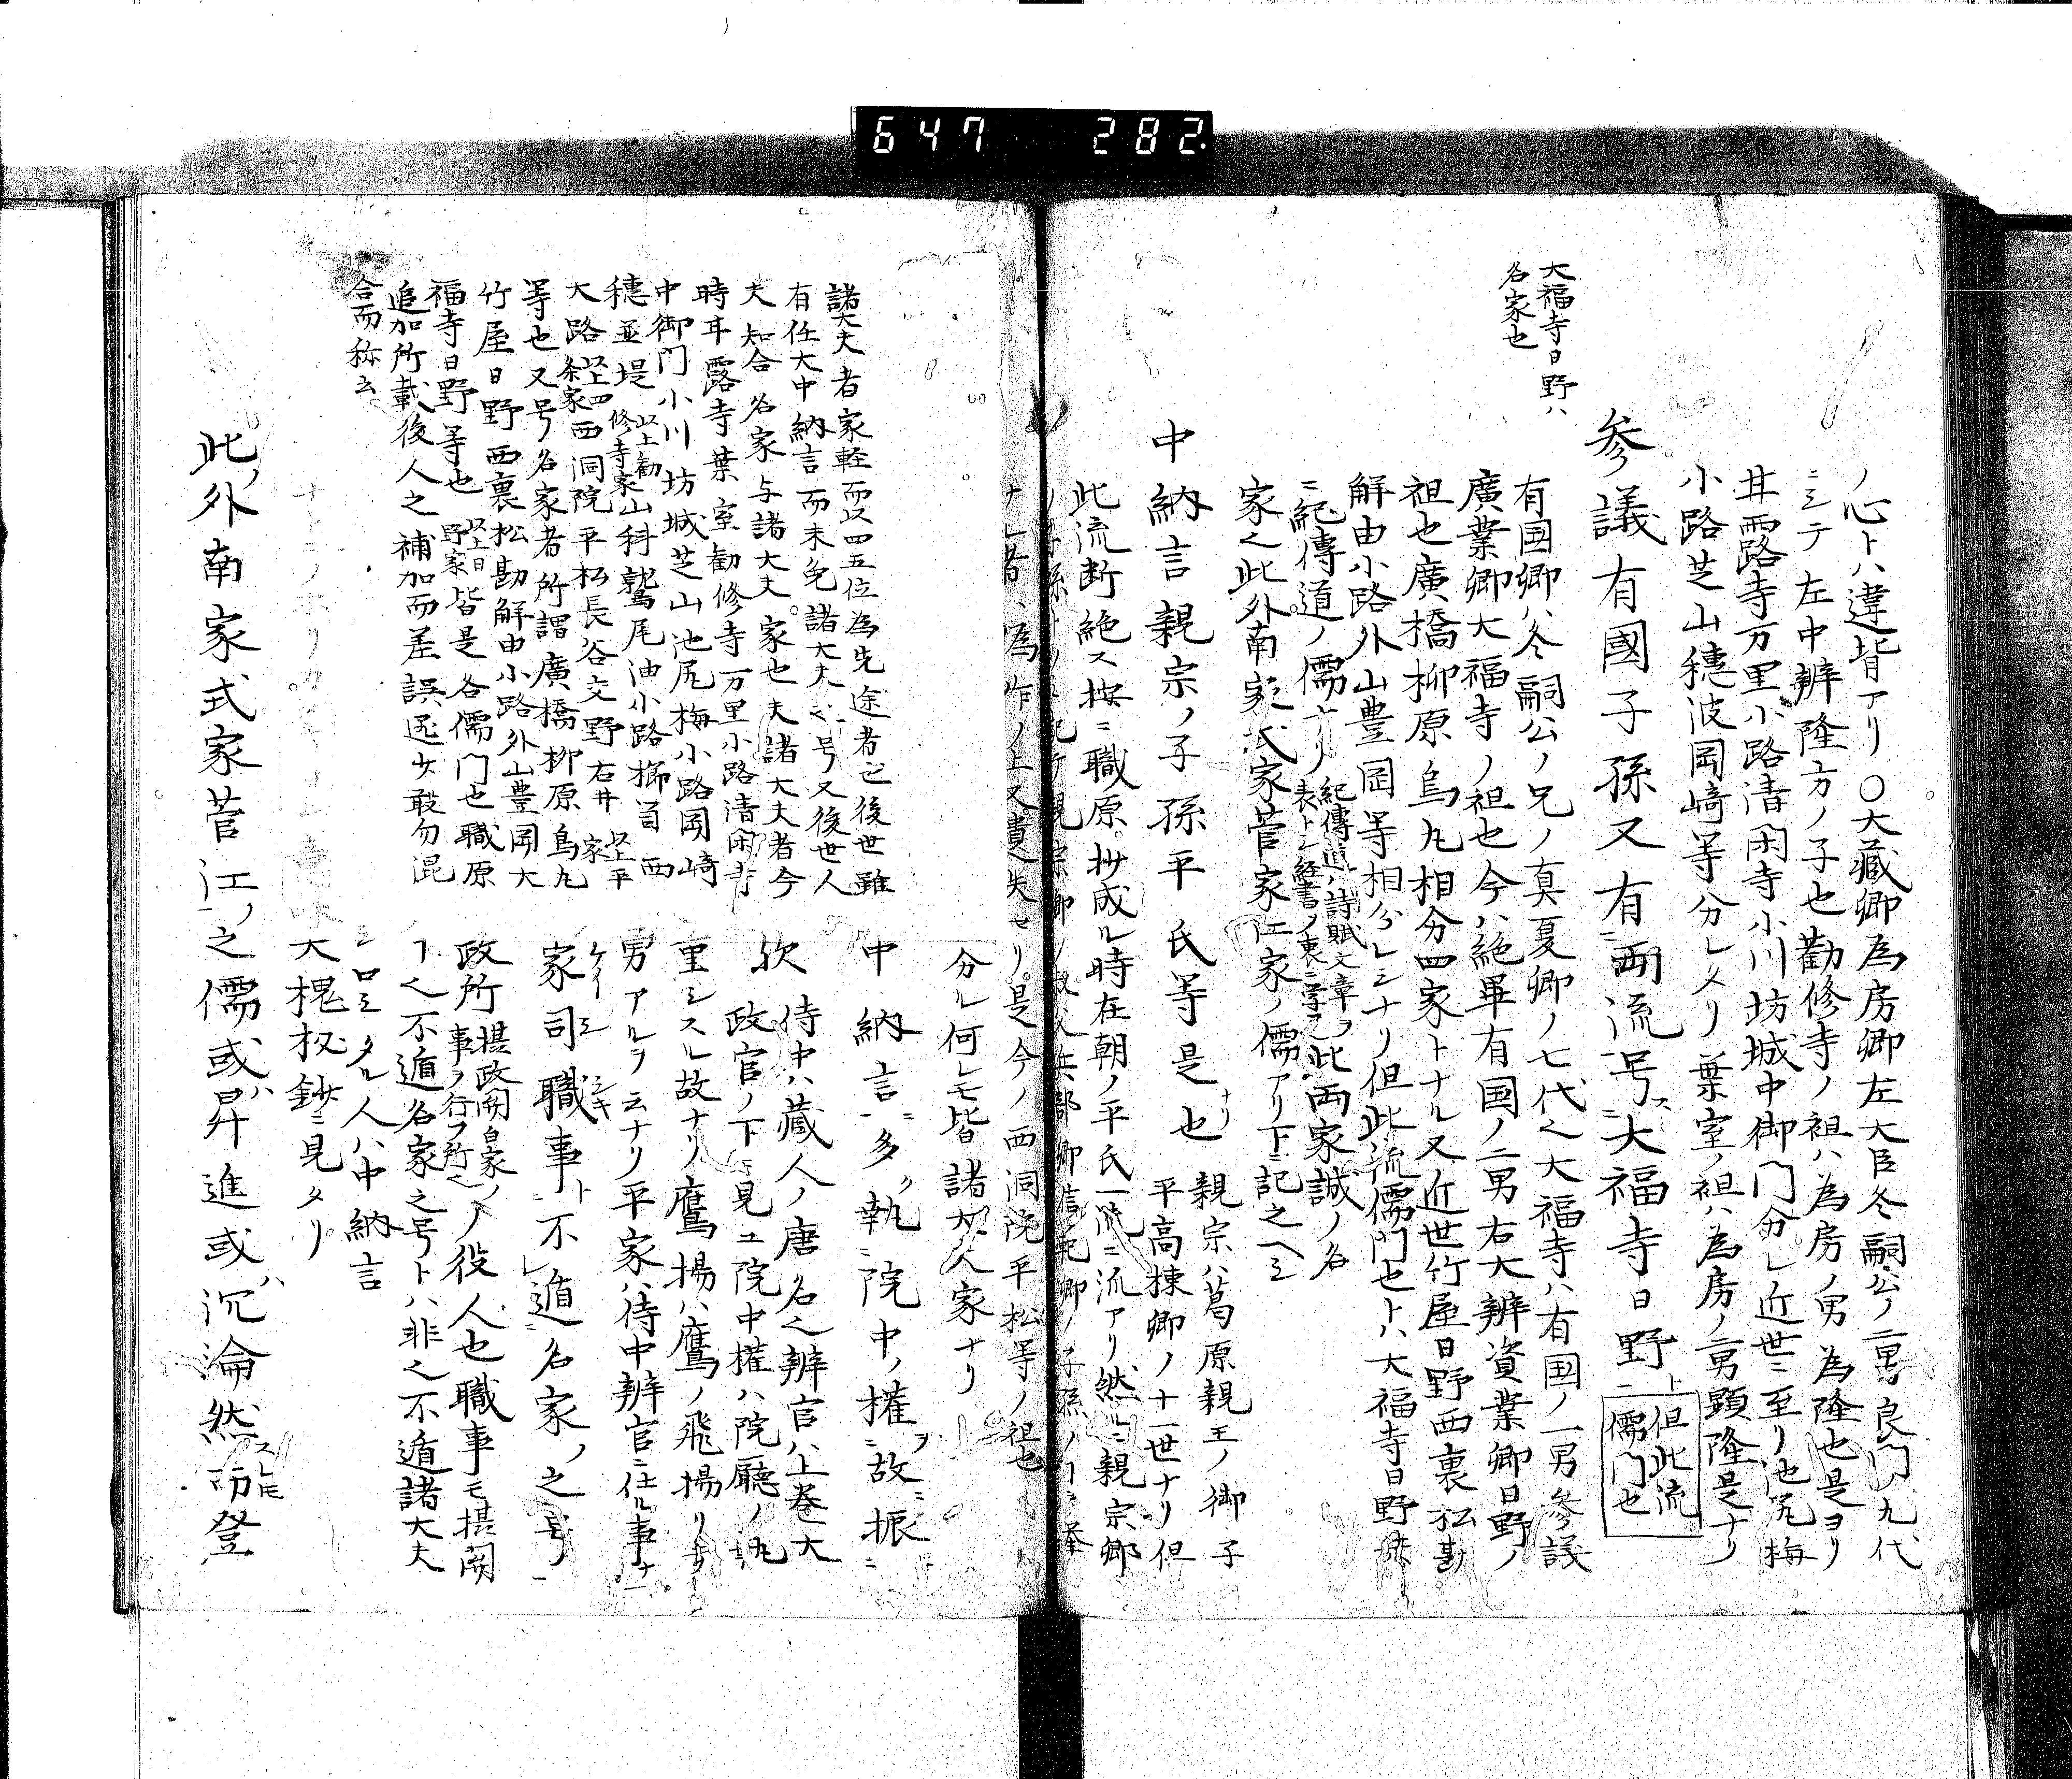 647 282
大福寺日野ハ
名家也
ノ心トハ違背アリ〇大藏卿為房卿左大臣冬嗣公ノ二男良門九代
ニシテ左中辨隆方ノ子也勸修寺ノ祖ハ為房ノ男為隆也是ヨリ
井露寺万里小路清閑寺小川坊城中御門分レ近世ニ至リ池尻梅
小路芝山穂波岡﨑等分レタリ葉室ノ祖ハ為房ノ二男顕隆是ナリ
参議有國子孫又有両流号大福寺日野但此流儒門也
有国卿ハ冬嗣公ノ兄ノ真夏卿ノ七代之大福寺ハ有国ノ一男参議
廣業卿大福寺ノ祖也今ハ絶畢有国ノ二男右大辨資業卿日野ノ
祖也廣橋柳原烏丸相分四家トナル又近世竹屋日野西裏松勘
解由小路外山豊岡等相分レシナリ但此流儒門也トハ大福寺日野共
ニ紀傳道ノ儒ナリ紀傳道ハ詩賦文章ヲ表トシ経書ノ裏ニ学フ此両家誠ノ名
家之此外南家式家菅家江家ノ儒アリ下ニ記之ヘシ
中納言親宗ノ子孫平氏等是也親宗ハ葛原親王ノ御子
平高棟卿ノ十一世ナリ但
此流断絶ス按ニ職原抄成ル時在朝ノ平氏一流ニ流アリ然ニ親宗卿
ノ子孫ナリ親宗卿ノ叔父兵部卿信範卿ノ子孫ノ
為作ノ上又遺失セリ是今ノ西洞院平松等ノ祖也
分レ何レモ皆諸大夫家ナリ
諸大夫者家軽而以四五位為先途者也後世雖
有任大中納言而未免諸大夫之号又後世人
夫知合名家与諸大夫家也夫諸大夫者今
時井露寺葉室勸修寺万里小路清閑寺
中御門小川坊城芝山池尻梅小路岡﨑
穂並堤以上勸修寺家山科鷲尾油小路櫛笥西
大路以上四条家西洞院平松長谷交野石井以上平家
等也又号名家者所謂廣橋柳原烏丸
竹屋日野西裏松勘解由小路外山豊岡大
福寺日野等也以上日野家皆是名儒門也職原
追加所載後人之補加而差誤逐少敢勿混
合而称云
中納言多執院中ノ權故振
欤侍中ハ藏人ノ唐名之辨官ハ上巻大
政官ノ下ニ見ユ院中權ハ院廳ノ執
重シスル故ナリ鷹揚ハ鷹ノ飛揚リ
男アルヲ云ナリ平家ハ侍中辨官ニ任ル事ナ
家司職事不遁名家ノ之号
政所摂政関白家ノ事ヲ行フ所之ノ役人也職事モ摂関
下之不遁名家之号トハ非之不遁諸大夫
シロミタル人ハ中納言
大槐秘鈔ニ見タリ
此外南家式家菅江ノ之儒或ハ昇進或ハ沉淪然而登